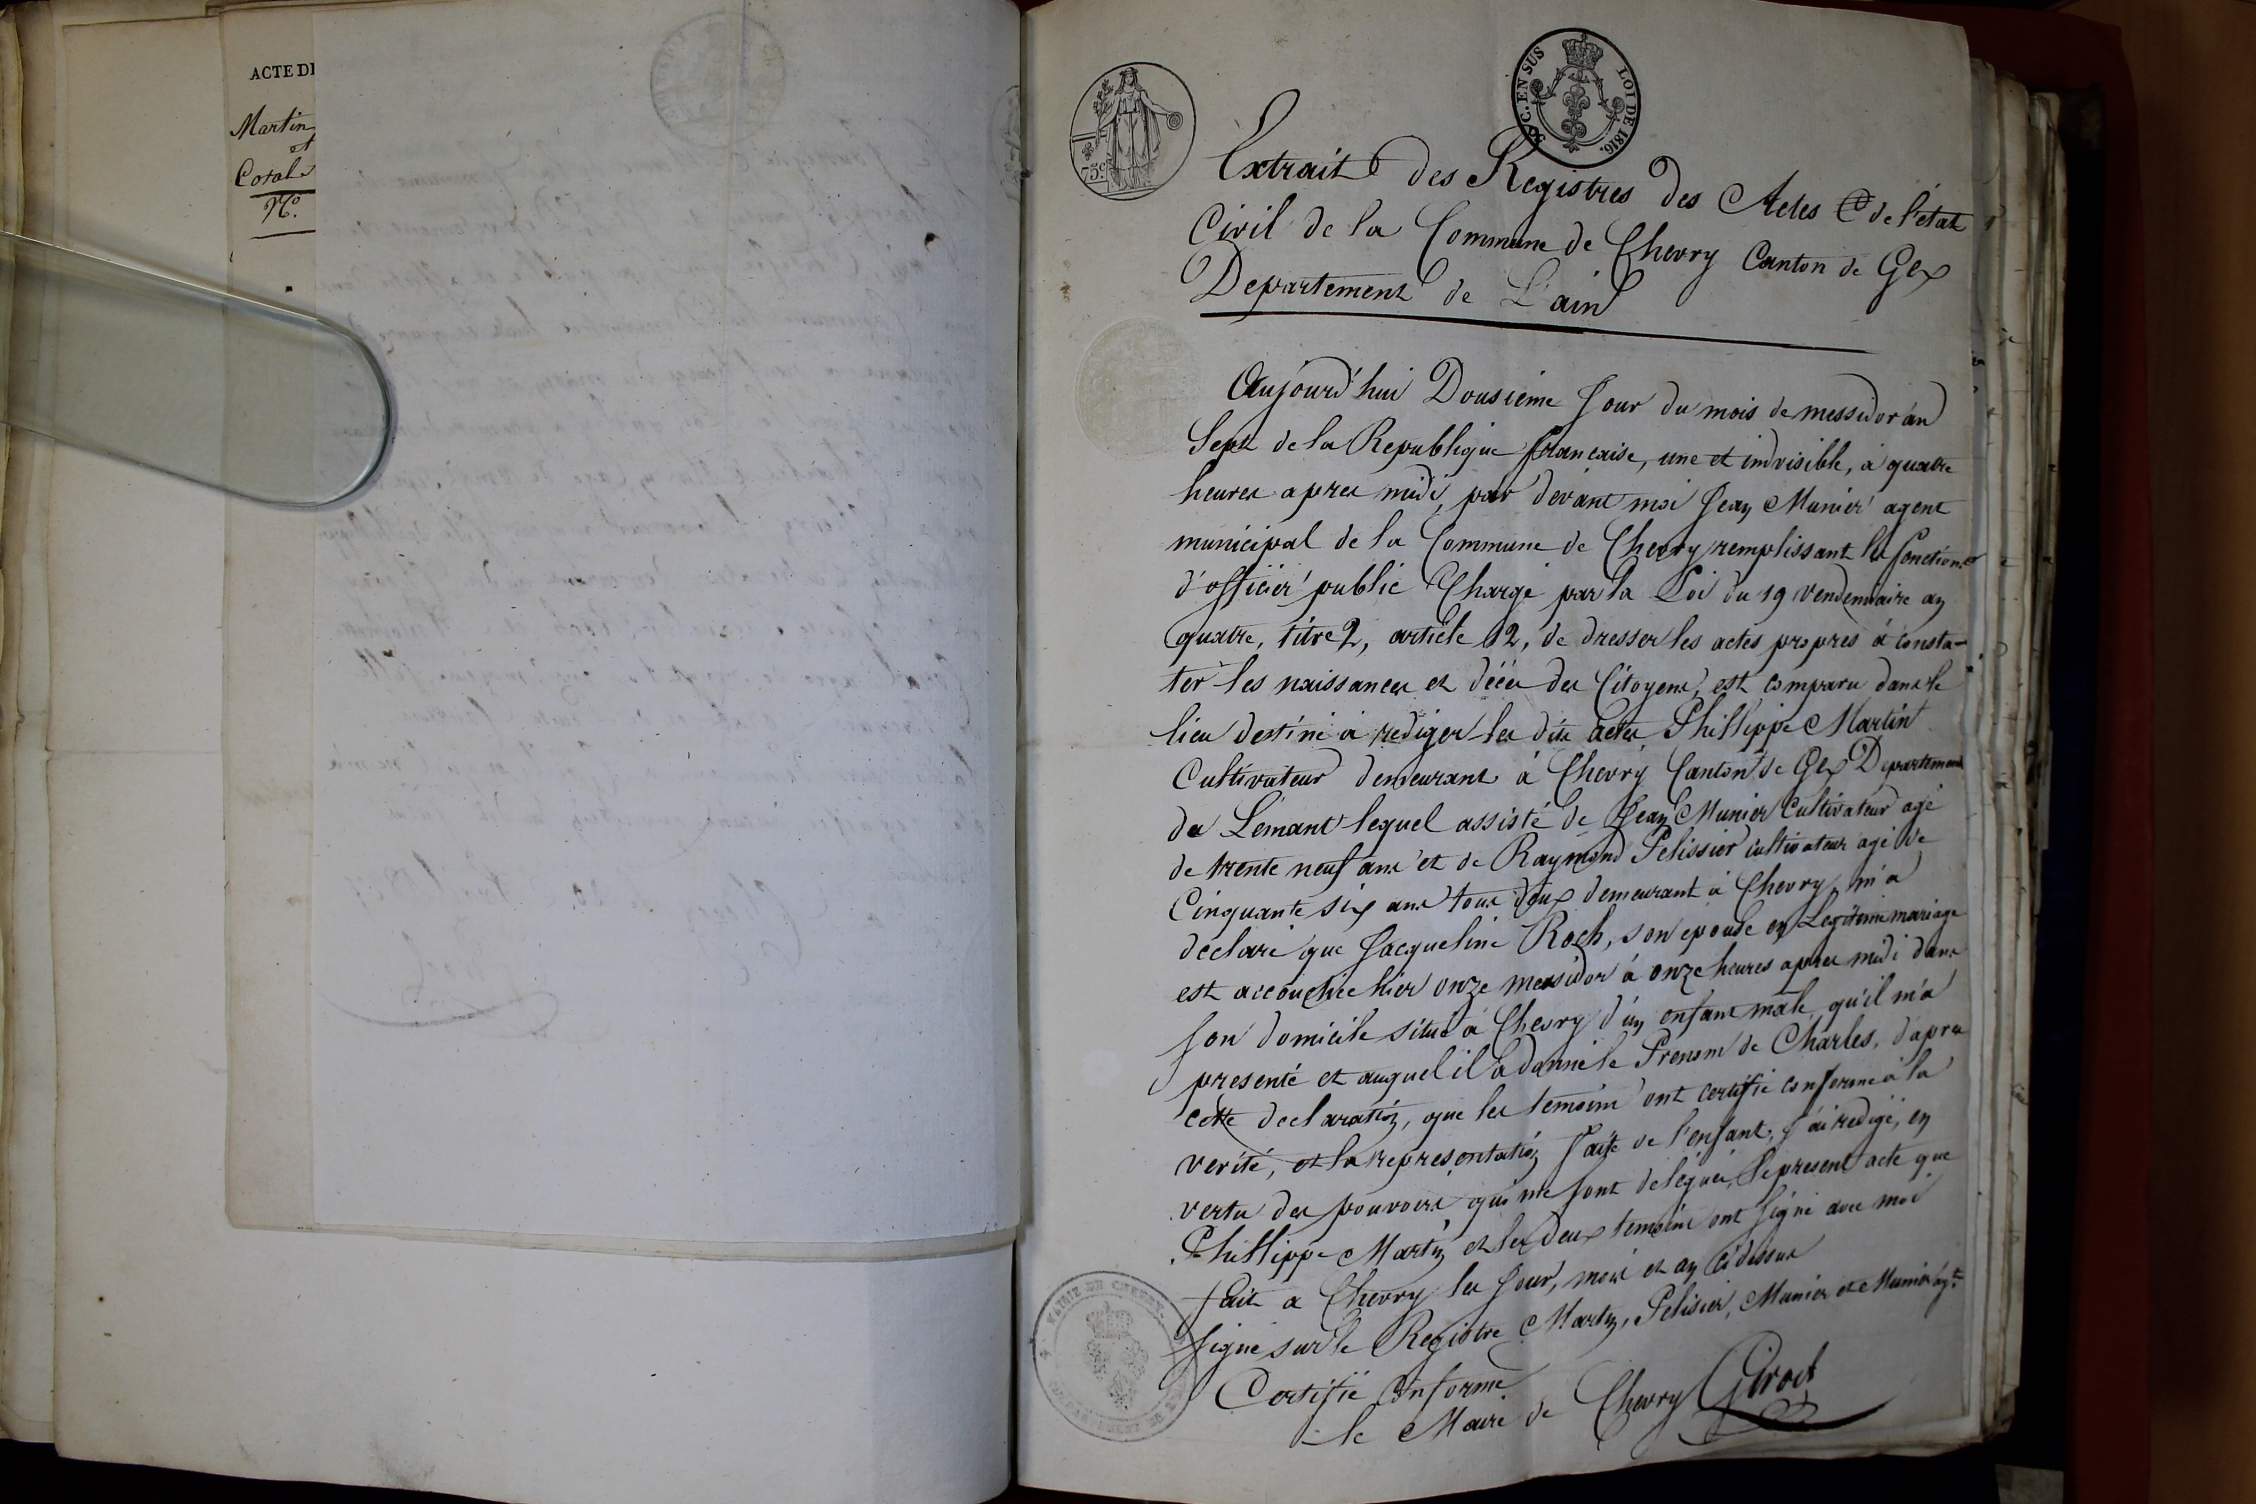 ACTE DE
Martin
et
Coral
N.º
75 c
C. EN SUS
LOI DE 1816.
Extrait des Registres des Actes de l'état
Civil de la Commune de Chevry Canton de Gex
Departement de L'ain
Aujourd'hui Dousieme Jour du mois de messidor an
Sept de la Republique francaise, une et indivisible, à quatre
heures apres midi, par devant moi Jean Munier agent
municipal de la Commune de Chevry remplissant les fonctions
d'officier public Chargé par la Loi du 19 vendemiaire an
quatre, titre 2, article 12, de dresser les actes propres à consta-
ter les naissances et décès des Citoyens, est comparu dans le
lieu destiné à rediger les dits actes Phillippe Martin
Cultivateur demeurant à Chevry Canton de Gex Departement
du Lémant lequel assisté de Jean Munier Cultivateur agé
de trente neuf ans et de Raymond Pelissier cultivateur agé de
Cinquante six ans tous deux demeurant à Chevry, m'a
declaré que Jacqueline Roch, son epouse en Legitime mariage
est accouchée hier onze messidor à onze heures apres midi dans
son domicile situé à Chevry d'un enfant male, qu'il m'a
presenté et auquel il a donné le Prenom de Charles, d'apres
cette declaration, que les temoins ont certifié conforme à la
verité, et la representation faite de l'enfant, j'ai redigé, en
vertu des pouvoirs qui me sont delegués, le present acte que
Phillippe Martin et les deux temoins ont signé avec moi
fait a Chevry les Jour, mois et an ci dessus
signé sur le Registre Martin, Pelisier, Munier et Munier agt.
Certifié Conforme
le Maire de Chevry Girod
MAIRIE DE CHEVRY
DEPARTEMENT DE L'AIN